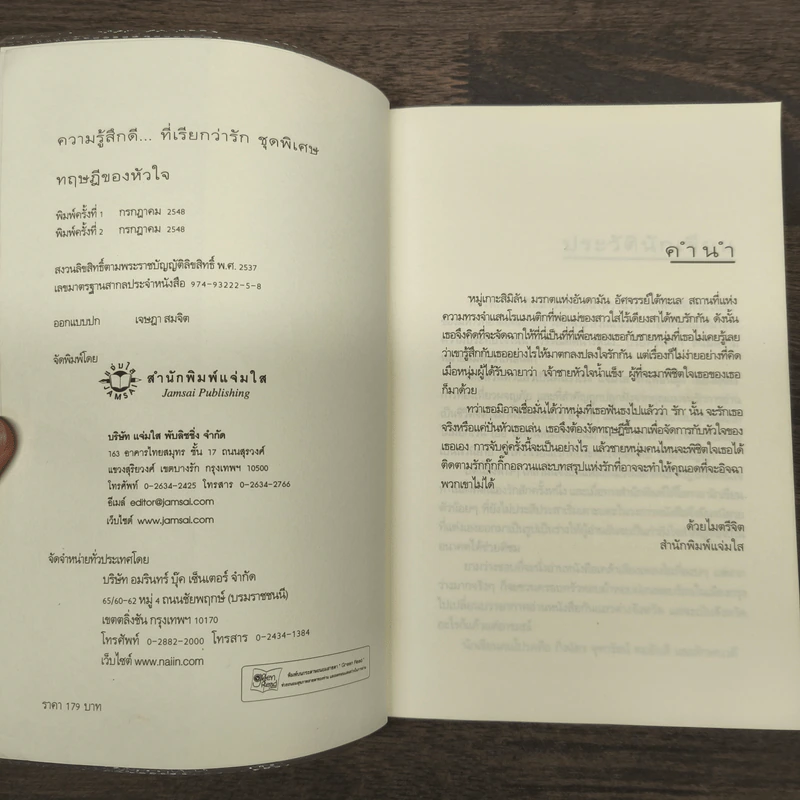 ความรู้สึกดี... ที่เรียกว่ารัก ชุดพิเศษ
ทฤษฎีของหัวใจ
พิมพ์ครั้งที่ 1 กรกฎาคม 2548
พิมพ์ครั้งที่ 2 กรกฎาคม 2548
สงวนลิขสิทธิ์ตามพระราชบัญญัติลิขสิทธิ์ พ.ศ. 2537
เลขมาตรฐานสากลประจำหนังสือ 974-93222-5-8
ออกแบบปก เจษฎา สมจิต
จัดพิมพ์โดย
แจ่มใส JAMSAI
สำนักพิมพ์แจ่มใส
Jamsai Publishing
บริษัท แจ่มใส พับลิชชิ่ง จำกัด
163 อาคารไทยสมุทร ชั้น 17 ถนนสุรวงศ์
แขวงสุริยวงศ์ เขตบางรัก กรุงเทพฯ 10500
โทรศัพท์ 0-2634-2425 โทรสาร 0-2634-2766
อีเมล์ editor@jamsai.com
เว็บไซต์ www.jamsai.com
จัดจำหน่ายทั่วประเทศโดย
บริษัท อมรินทร์ บุ๊ค เซ็นเตอร์ จำกัด
65/60-62 หมู่ 4 ถนนชัยพฤกษ์ (บรมราชชนนี)
เขตตลิ่งชัน กรุงเทพฯ 10170
โทรศัพท์ 0-2882-2000 โทรสาร 0-2434-1384
เว็บไซต์ www.naiin.com
Green Read
พิมพ์บนกระดาษถนอมสายตา "Green Read"
ราคา 179 บาท
คำนำ
หมู่เกาะสิมิลัน มรกตแห่งอันดามัน อัศจรรย์ใต้ทะเล สถานที่แห่ง
ความทรงจำแสนโรแมนติกที่พ่อแม่ของสาวใสไร้เดียงสาได้พบรักกัน ดังนั้น
เธอจึงคิดที่จะจัดฉากให้ที่นี่เป็นที่ที่เพื่อนของเธอกับชายหนุ่มที่เธอไม่เคยรู้เลย
ว่าเขารู้สึกกับเธออย่างไรให้มาตกลงปลงใจรักกัน แต่เรื่องก็ไม่ง่ายอย่างที่คิด
เมื่อหนุ่มผู้ได้รับฉายาว่า 'เจ้าชายหัวใจน้ำแข็ง' ผู้ที่จะมาพิชิตใจเธอของเธอ
ก็มาด้วย
ทว่าเธอมิอาจเชื่อมั่นได้ว่าหนุ่มที่เธอฟันธงไปแล้วว่า 'รัก' นั้น จะรักเธอ
จริงหรือแค่ปั่นหัวเธอเล่น เธอจึงต้องงัดทฤษฎีขึ้นมาเพื่อจัดการกับหัวใจของ
เธอเอง การจับคู่ครั้งนี้จะเป็นอย่างไร แล้วชายหนุ่มคนไหนจะพิชิตใจเธอได้
ติดตามรักกุ๊กกิ๊กอลวนและบทสรุปแห่งรักที่อาจจะทำให้คุณอดที่จะอิจฉา
พวกเขาไม่ได้
ด้วยไมตรีจิต
สำนักพิมพ์แจ่มใส